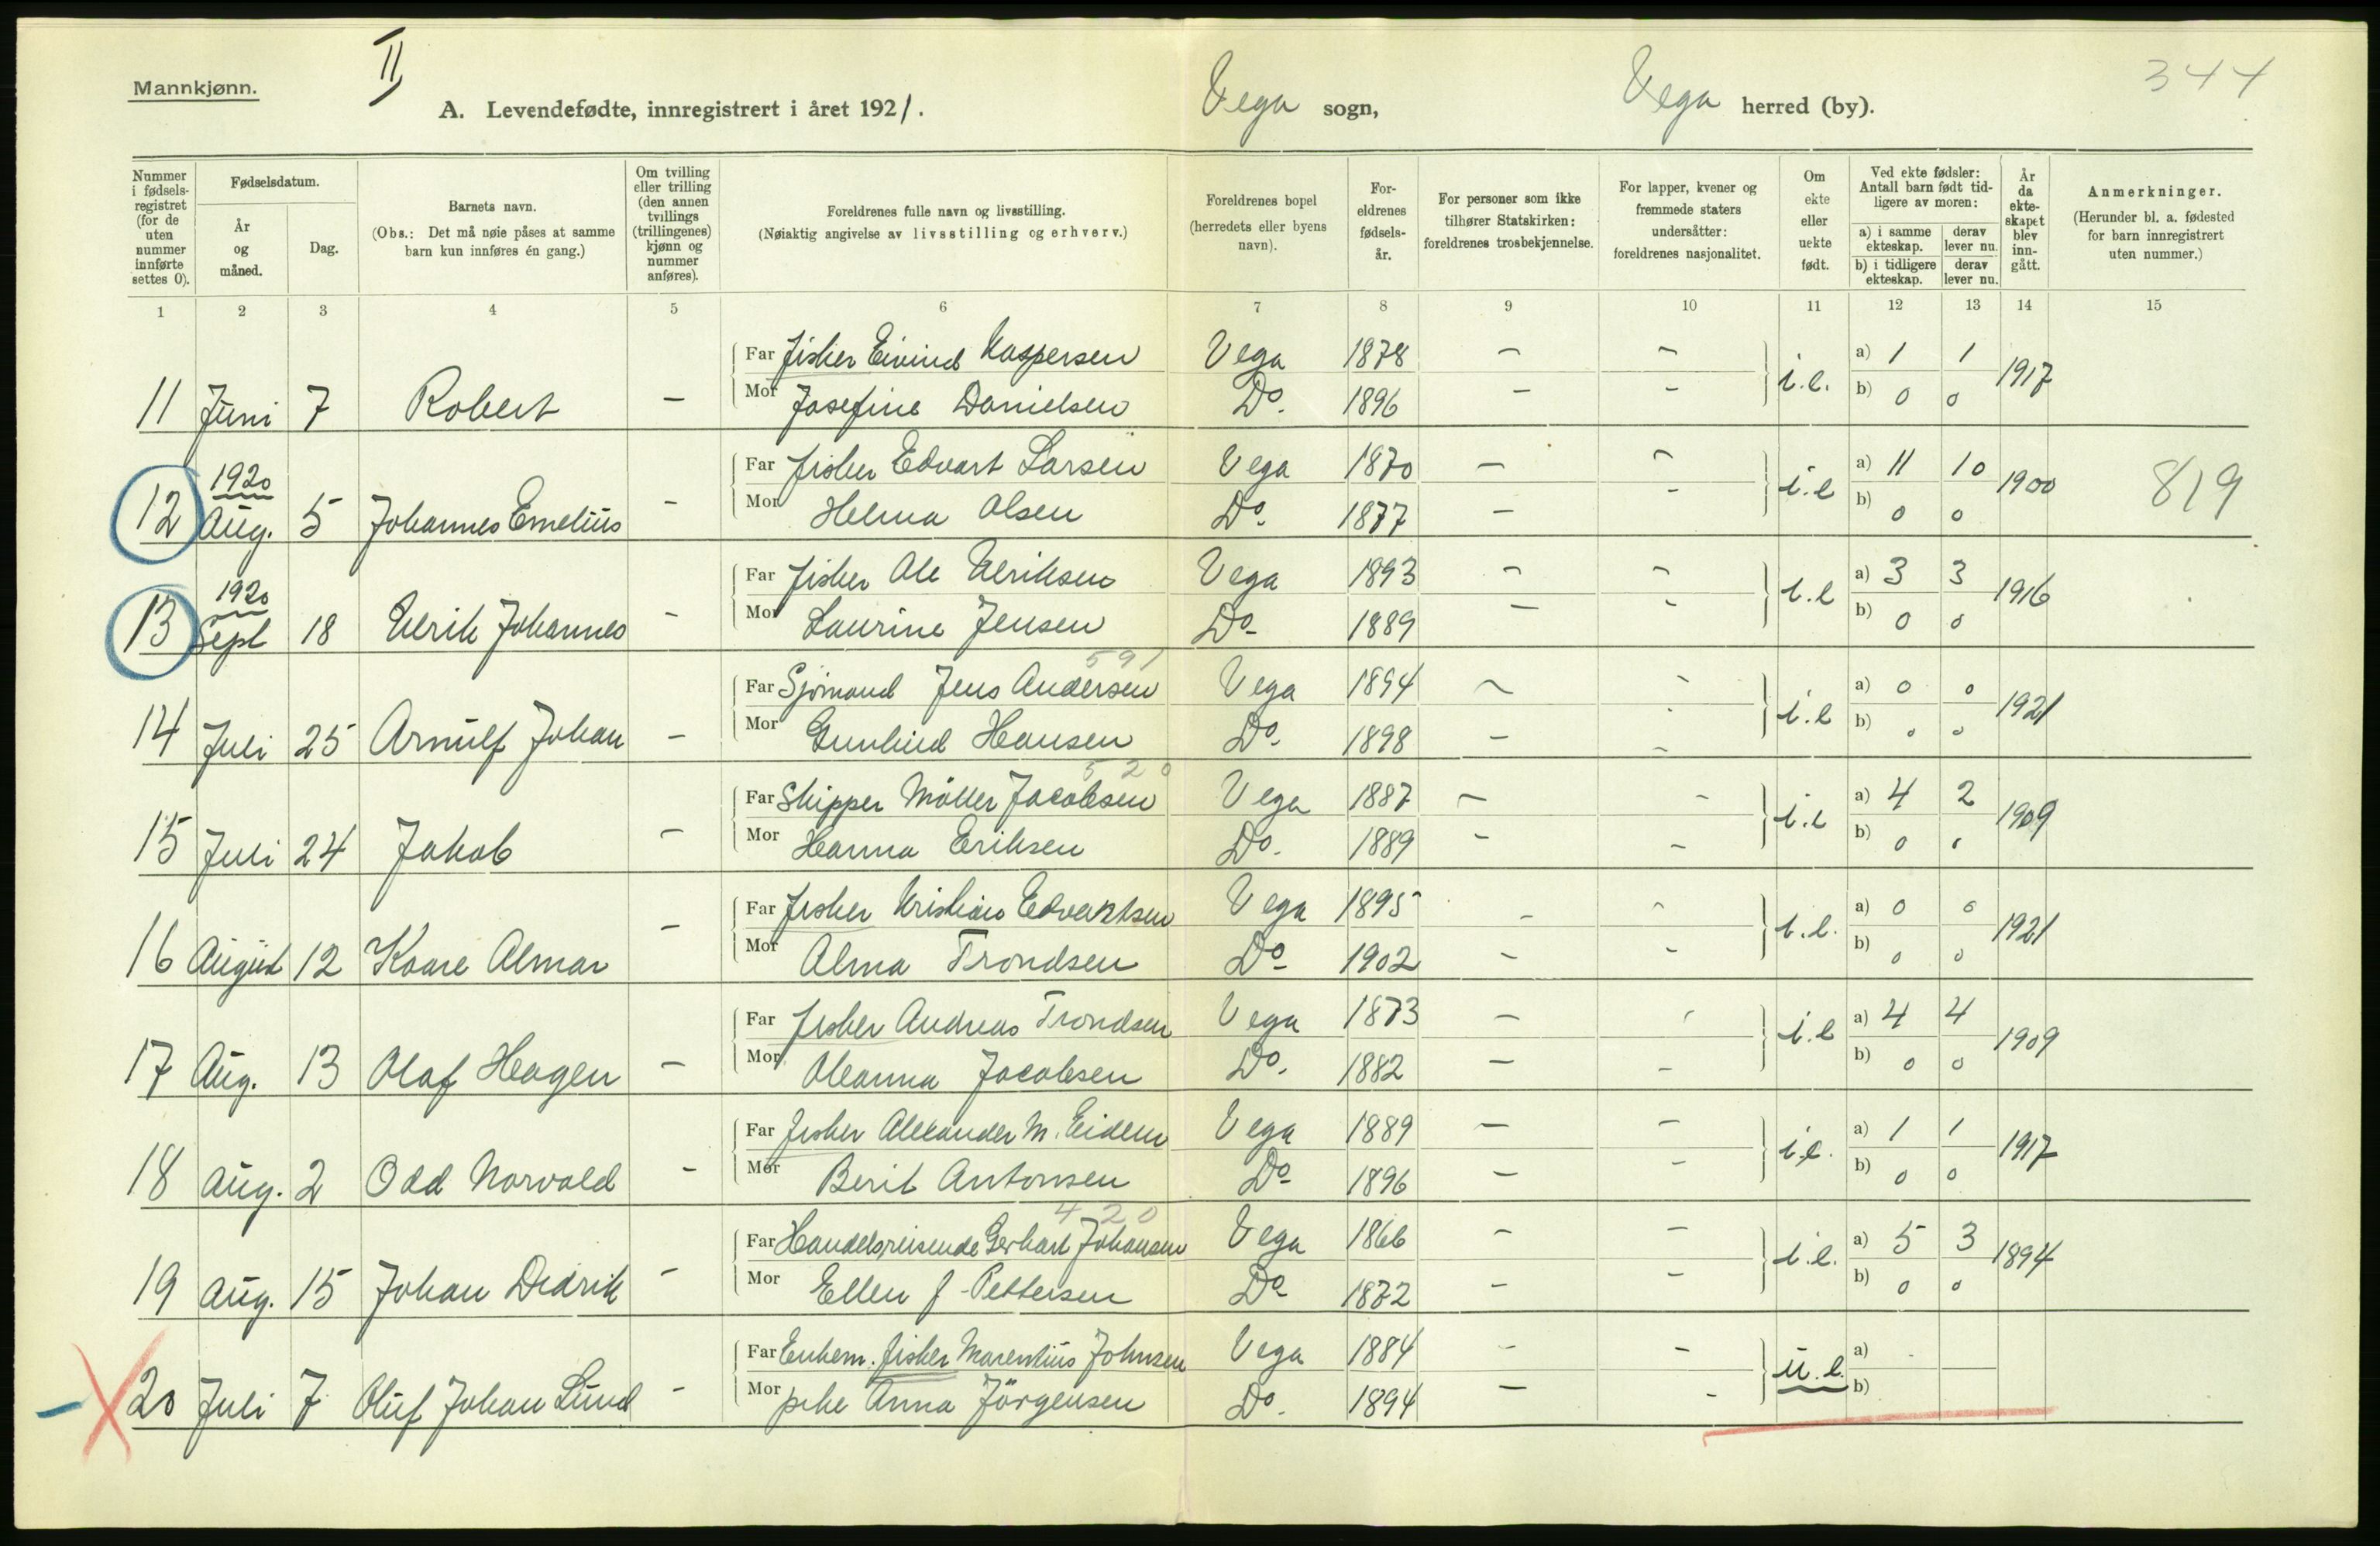 Mannkjønn.
II
A. Levendefødte, innregistrert i året 1921.
Vega sogn,
Vega herred (by).
344
Nummer i fødsels-registret (for de uten nummer innførte settes 0).
Fødselsdatum.
År og måned.
Dag.
Barnets navn.
(Obs.: Det må nøie påses at samme barn kun innføres én gang.)
Om tvilling eller trilling (den annen tvillings (trillingenes) kjønn og nummer anføres).
Foreldrenes fulle navn og livsstilling.
(Nøiaktig angivelse av livsstilling og erhverv.)
Foreldrenes bopel (herredets eller byens navn).
For-eldrenes fødsels-år.
For personer som ikke tilhører Statskirken: foreldrenes trosbekjennelse.
For lapper, kvener og fremmede staters undersåtter: foreldrenes nasjonalitet.
Om ekte eller uekte født.
Ved ekte fødsler: Antall barn født tid-ligere av moren:
a) i samme ekteskap.
derav lever nu.
b) i tidligere ekteskap.
derav lever nu.
År da ekte-skapet blev inn-gått.
Anmerkninger.
(Herunder bl. a. fødested for barn innregistrert uten nummer.)
1 2 3 4 5 6 7 8 9 10 11 12 13 14 15
Far Fisker Eivind Kaspersen Vega 1878 – – a) 1 1
11 Juni 7 Robert – i.e. 1917
Mor Josefine Danielsen Do. 1896 – – b) 0 0
1920
Far Fisker Edvart Larsen Vega 1870 – – a) 11 10
12 Aug. 5 Johannes Emelius – i.e 1900 819
Mor Helma Olsen Do. 1877 – – b) 0 0
1920
Far Fisker Ole Ulriksen Vega 1893 – – a) 3 3
13 Sept 18 Ulrik Johannes – i.e 1916
Mor Laurine Jensen Do. 1889 – – b) 0 0
591
Far Sjömand Jens Andersen Vega 1894 – – a) 0 0
14 Juli 25 Arnulf Johan – i.e 1921
Mor Gunhild Hansen Do. 1898 – – b) 0 0
520
Far Skipper Möller Jacobsen Vega 1887 – – a) 4 2
15 Juli 24 Jakob – i.e 1909
Mor Hanna Eriksen Do. 1889 – – b) 0 0
Far Fisker Kristian Edvartsen Vega 1895 – – a) 0 0
16 August 12 Kaare Almar – i.e. 1921
Mor Alma Trondsen Do. 1902 – – b) 0 0
Far Fisker Andreas Trondsen Vega 1873 – – a) 4 4
17 Aug. 13 Olaf Hagen – i.e 1909
Mor Oleanna Jacobsen Do. 1882 – – b) 0 0
Far Fisker Alexander M. Eidem Vega 1889 – – a) 1 1
18 Aug. 2 Odd Norvald – i.e. 1917
Mor Berit Antonsen Do. 1896 – – b) 0 0
420
Far Handelsreisende Gerhart Johansen Vega 1866 – – a) 5 3
19 Aug. 15 Johan Didrik – i.e. 1894
Mor Ellen J Pettersen Do. 1872 – – b) 0 0
Far Enkem. fisker Marentius Johnsen Vega 1884 – – a)
20 Juli 7 Oluf Johan Lund – u.e.
Mor pike Anna Jörgensen Do. 1894 – – b)